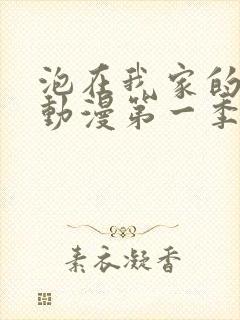 泡在我家的
動漫第一季
素衣凝香